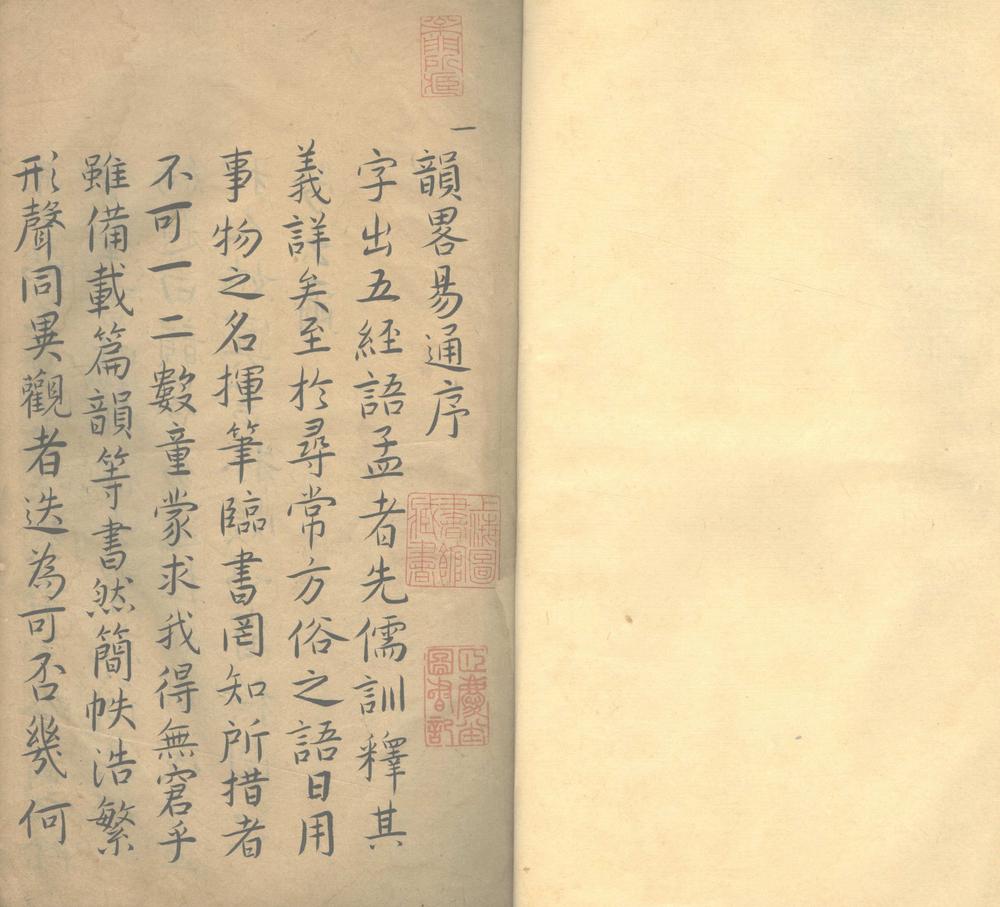 韻畧易通序
字出五經語孟者先儒訓釋其
義詳矣至扵尋常方俗之語日用
事物之名揮筆臨書罔知所措者
不可一二數童蒙求我得無窘乎
雖備載篇韻等書然簡帙浩繁
形聲同異觀者迭為可否幾何
上海圖書館藏書